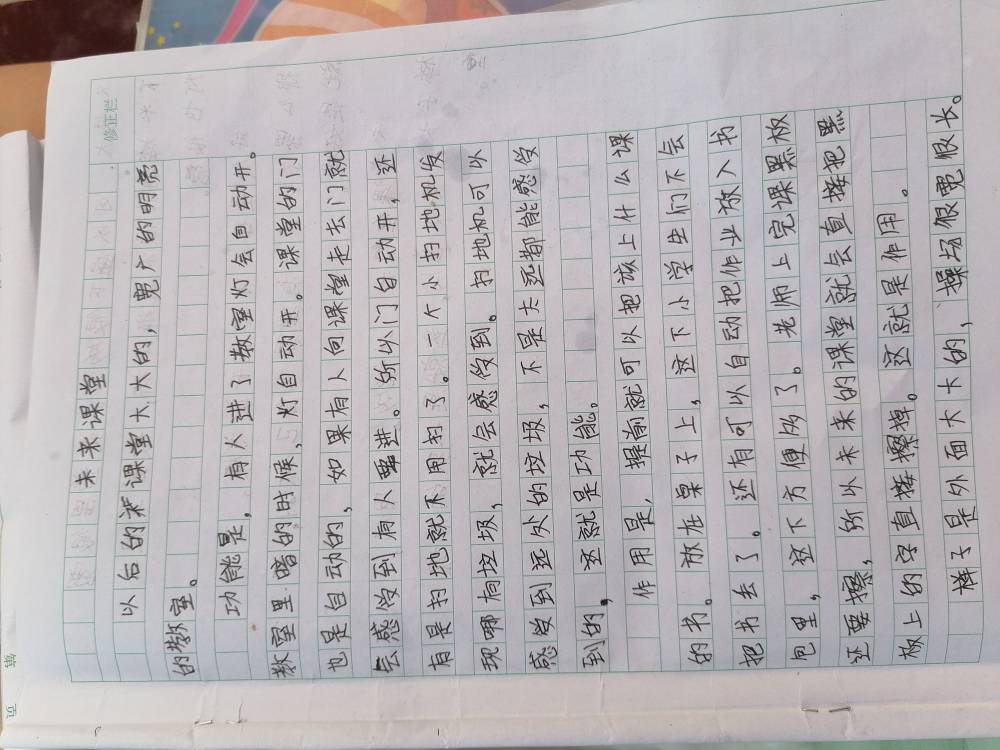 未来课堂
以后的课堂大大的,宽广的明亮
的教室。
功能是,有人进了教室灯会自动开。
教室里暗的时候,灯自动开。课堂的门
也是自动的,如果有人向课堂走去门就
会感受到有人要进。所以门自动开,还
有是扫地就不用扫了。一个小扫地机发
现哪有垃圾,就会感受到。扫地机可以
感受到远处的垃圾,不是太远都能感受
到的,这就是功能。
作用是,提前就可以把该上什么课
的书。放在桌子上,这下小学生们不会
把书丢了。还有可以自动把作业放入书
包里,这下方便多了。老师上完课黑板
还要擦,所以未来的课堂就会直接把黑
板上的字直接擦掉。这就是作用。
样子是外面大大的,操场很宽很长。
修正栏
第
页